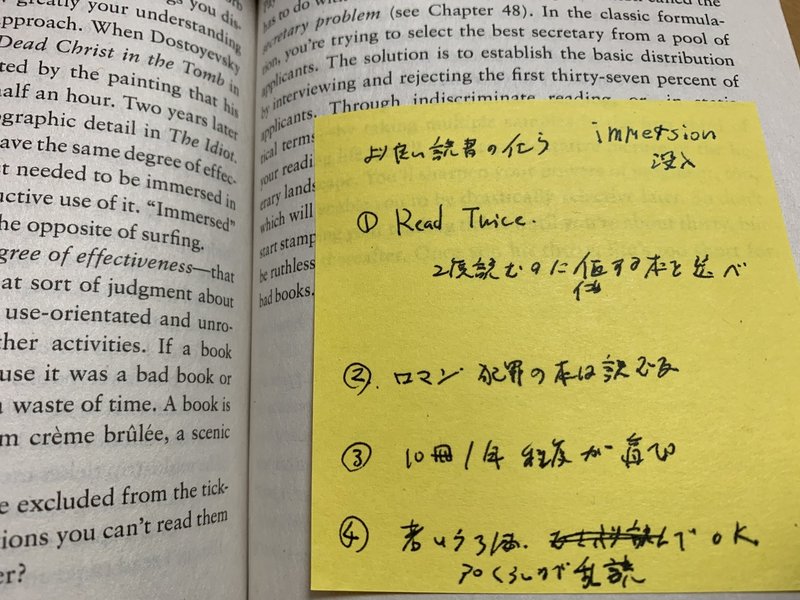 greatly your understanding
approach. When Dostoyevsky
Dead Christ in the Tomb in
ted by the painting that his
half an hour. Two years later
ographic detail in The Idiot.
ave the same degree of effec-
t needed to be immersed in
uctive use of it. “Immersed”
he opposite of surfing.
gree of effectiveness—that
at sort of judgment about
use-orientated and unro-
ther activities. If a book
use it was a bad book or
a waste of time. A book is
m crème brûlée, a scenic
e excluded from the tick-
ions you can't read them
er?
secretary problem (see Chapter 48). In the classic formula-
tion, you're trying to select the best secretary from a pool of
applicants. The solution is to establish the basic distribution
by interviewing and rejecting the first thirty-seven percent of
applicants. Through indiscriminate reading
tical terms
your readi
erary lands
which will
start stamp
be ruthless
bad books.
より良い読書の仕方 immersion
没入
① Read Twice.
2度読むのに値する本を選べ
② ロマン 犯罪の本は読むな
③ 10冊/年 程度が
④ 若いうちは OK.
30くらいまで乱読